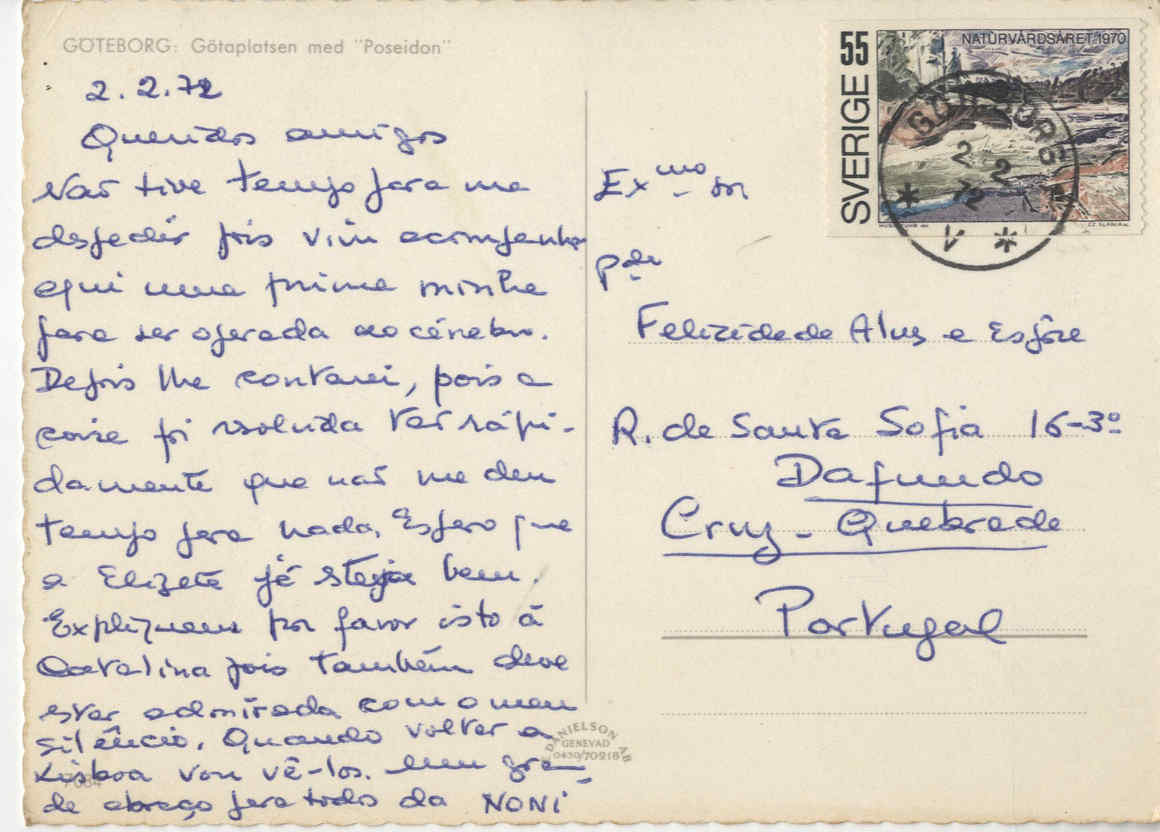 GÖTEBORG: Götaplatsen med "Poseidon"
2.2.72
Queridos amigos
Não tive tempo para me
despedir pois vim acompanhar
aqui uma prima minha
para ser operada ao cérebro.
Depois lhe contarei, pois a
coisa foi resolvida tão rápi-
damente que não me deu
tempo para nada. Espero que
a Elizete já steja bem.
Expliquem por favor isto à
Catalina pois também deve
estar admirada com o meu
silêncio. Quando voltar a
Lisboa vou vê-los. Um gran-
de abraço para todos da NONI
7084
DANIELSON AB
GENEVAD
0430/70218
SVERIGE 55
NATURVÅRDSÅRET 1970
GÖTEBORG
2 2
72
V
Exmo Sr
Pde
Felicidade Alves e Espôse
R. de Santa Sofia 16-3º
Dafundo
Cruz-Quebrada
Portugal